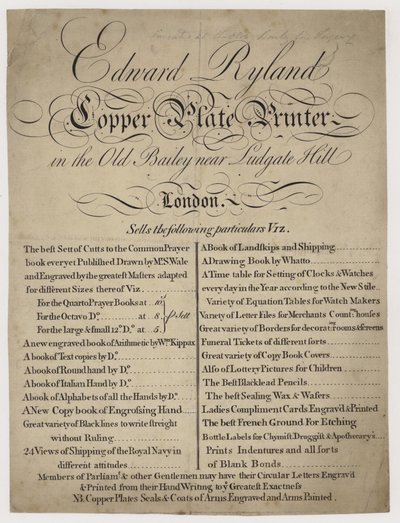 Edward Ryland
Copper Plate Printer
in the Old Bailey near Ludgate Hill
London.
Sells the following particulars Viz.
The best Sett of Cutts to the Common Prayer
book ever yet Published Drawn by Mr. S. Wale
and Engraved by the greatest Masters adapted
for different Sizes thereof Viz
For the Quarto Prayer Books at
For the Octavo Do. at 8
For the large & small 12s. Do. at 5.
A new engraved book of Arithmetic by Wm. Kippax
A book of Text copies by Do.
A book of Round hand by Do.
A book of Italian Hand by Do.
A book of Alphabets of all the Hands by Do.
A New Copy book of Engrossing Hand
Great variety of Black lines to write streight
without Ruling
24 Views of Shipping of the Royal Navy in
different attitudes
A Book of Landskips and Shipping
A Drawing Book by Whatto
A Time table for Setting of Clocks & Watches
every day in the Year according to the New Stile
Variety of Equation Tables for Watch Makers
Variety of Letter Files for Merchants Countg. houses
Great variety of Borders for decoratg. rooms & screens
Funeral Tickets of different sorts
Great variety of Copy Book Covers
Also of Lottery Pictures for Children
The Best Blacklead Pencils
The best Sealing Wax & Wafers
Ladies Compliment Cards Engrav'd & Printed
The best French Ground For Etching
Bottle Labels for Chymist Droggist & Apothecary's
Prints Indentures and all sorts
of Blank Bonds
Members of Parliamt. & other Gentlemen may have their Circular Letters Engrav'd
& Printed from their Hand Writing to ye Greatest Exactness
NB. Copper Plates Seals & Coats of Arms Engraved and Arms Painted.